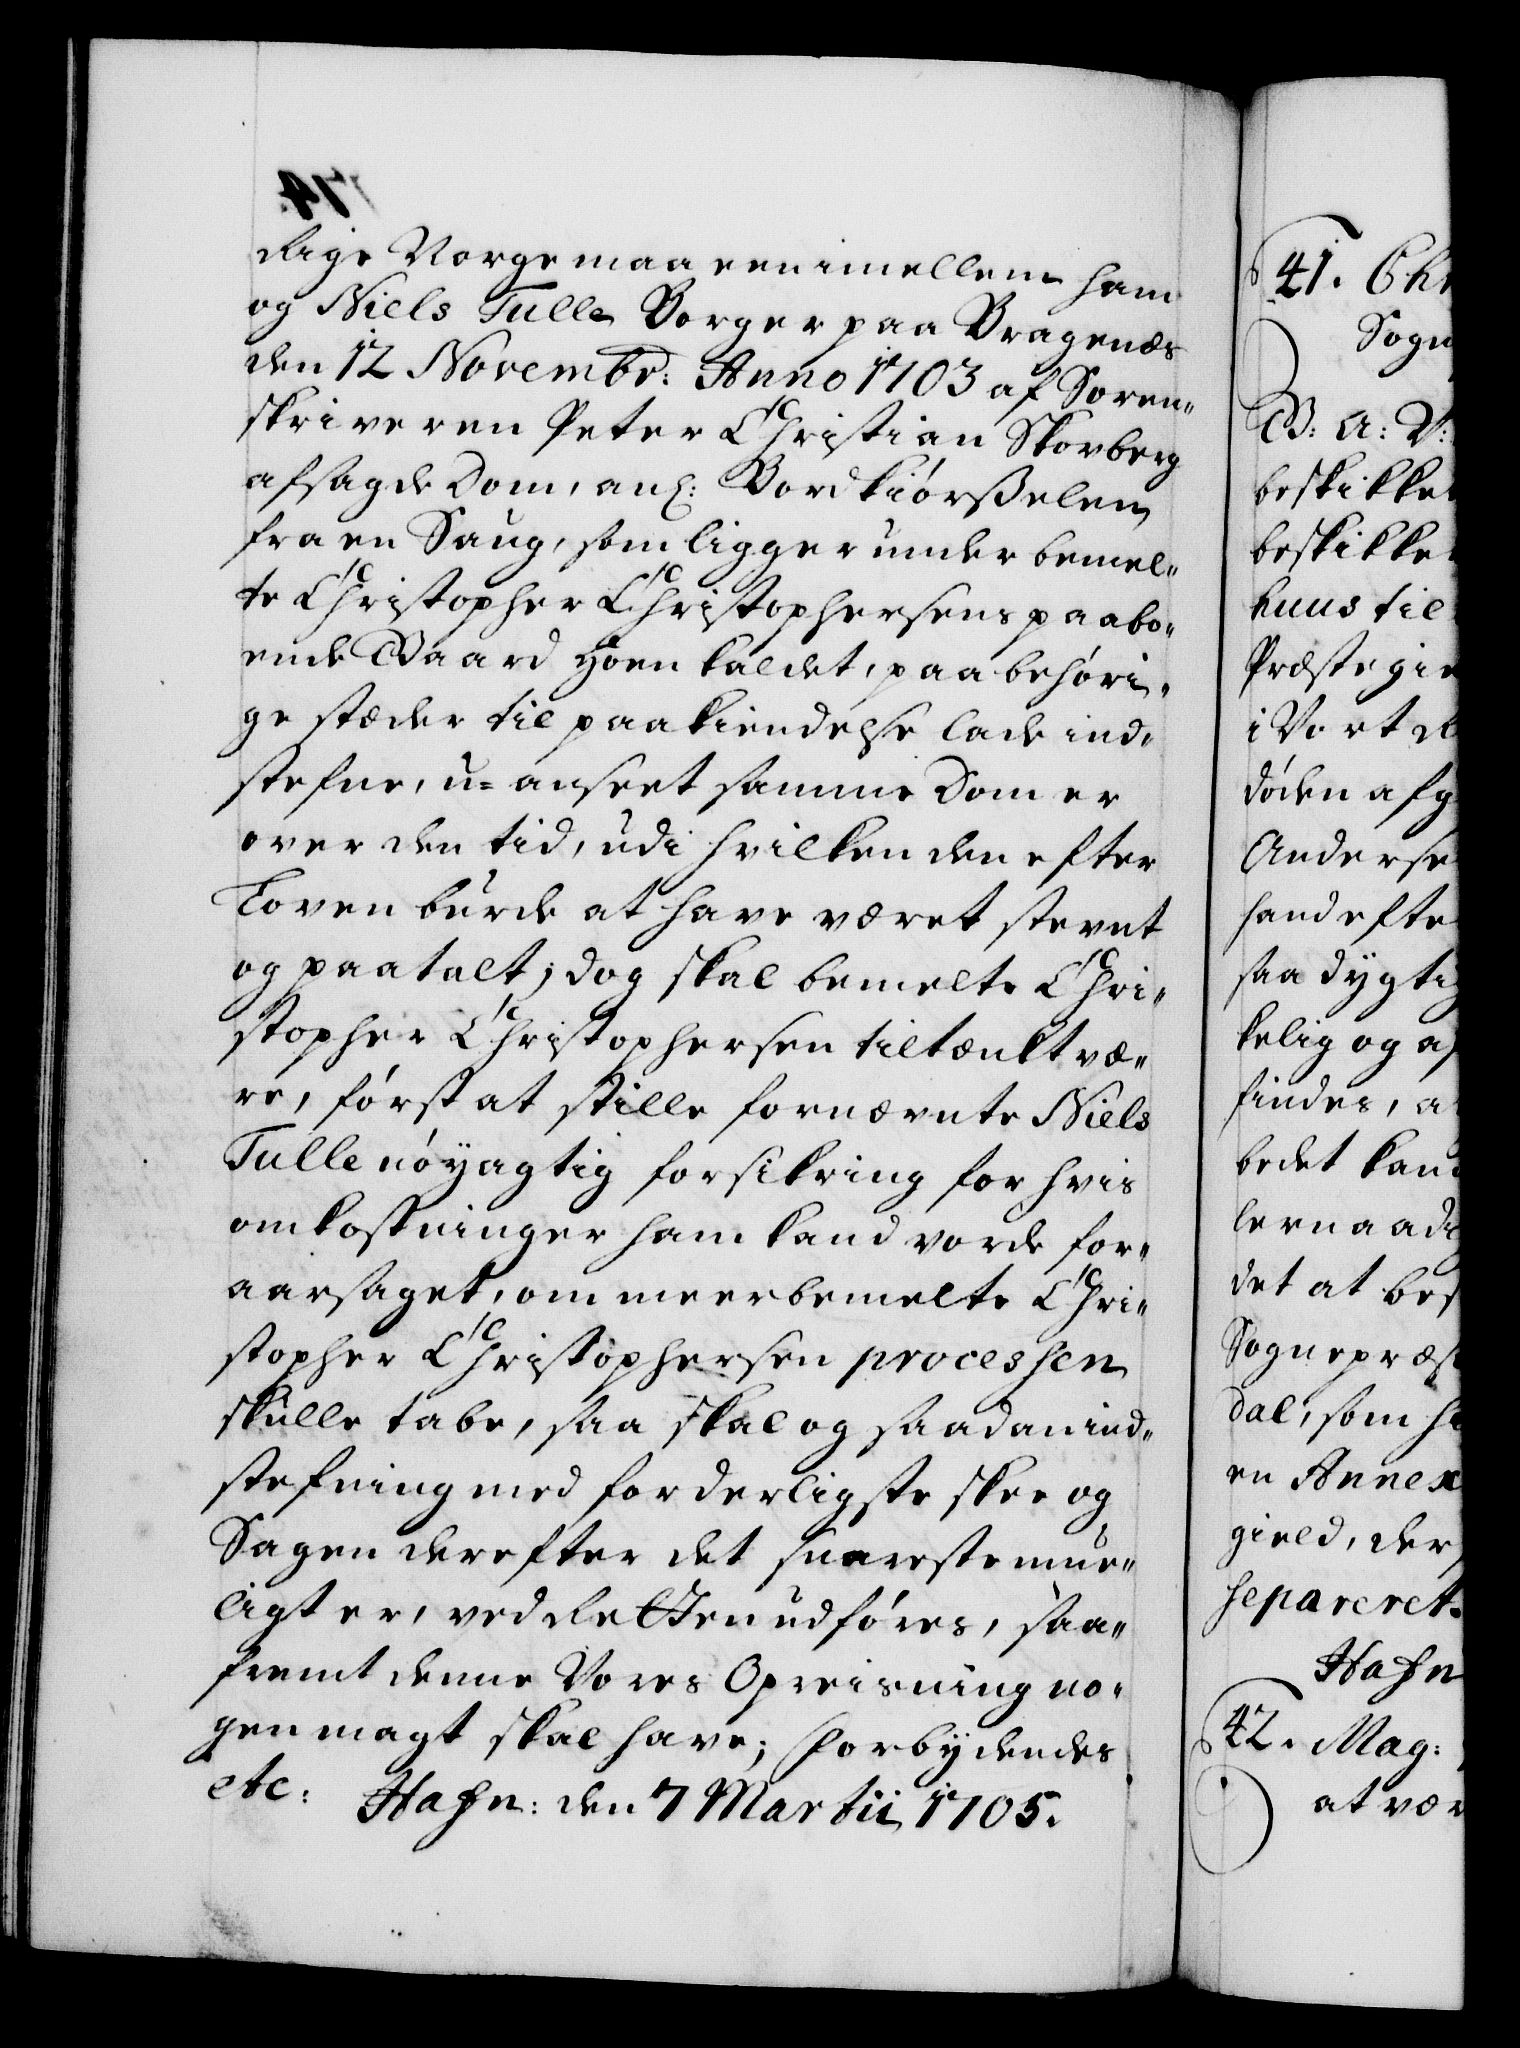 Rige Norge maa een imellem ham
og Niels Tulle Borger paa Bragenæs
den 12 Novembr: Anno 1703 af Soren-
skriveren Peter Christian Skovberg
afsagde Dom, anl: Bordkiørßelen
fra en Saug, som ligger under bemel-
te Christopher Christophersens paabo-
ende Gaard Hoen kaldet, paa behøri-
ge stæder til paakiendelse lade ind-
stefne, u-anseet samme Dom er
over den tid, udi hvilken den efter
Loven burde at have været stevnt
og paatalt; dog skal bemelte Chri-
stopher Christophersen tiltænkt væ-
re, først at stille fornævnte Niels
Tulle nøyagtig forsikring for hvis
omkostninger ham kand vorde for-
aarsaget, om meerbemelte Chri-
stopher Christophersen processen
skulle tabe, saa skal og saadan ind-
stefning med forderligste skee og
Sagen derefter det snareste mue-
ligt er, ved Retten udføres, saa-
fremt denne Vores Opreisning no-
gen magt skal have; Forbydendes
etc: Hafn: den 7 Martii 1705.
41. Chr
Sogn
G: A: V:
beskikket
beskikket
huus til
Præstegie
i Vort R
døden afg
Anderse
hand efte
saa dygtig
kelig og
findes, a
bedet kand
lernaadi
det at bes
Sognepræst
dal, som h
en Annex
gield, der
separeret.
Hafn
42. Mag:
at vær